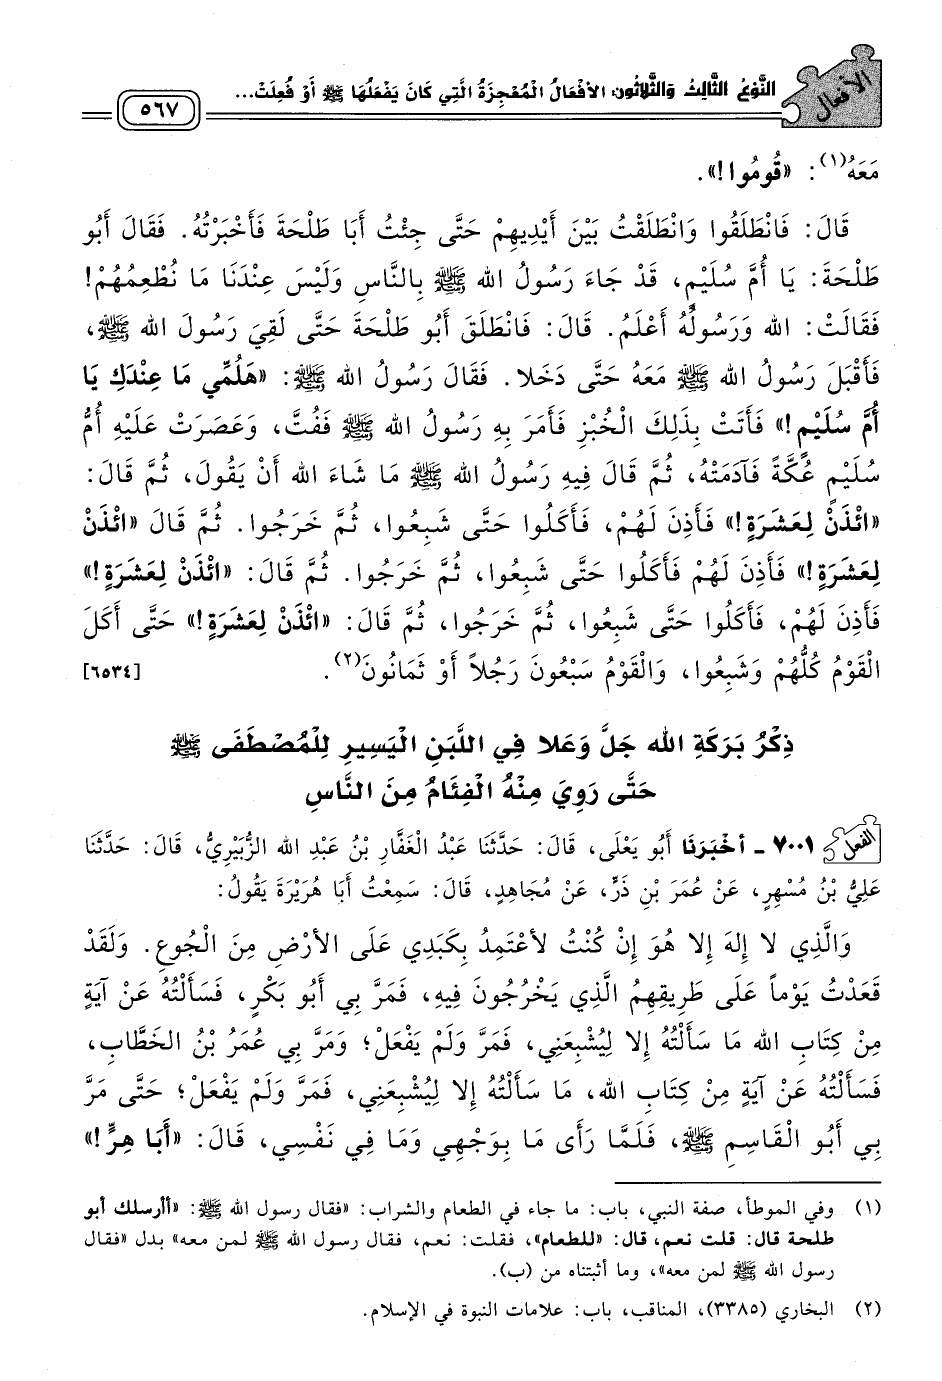 الأفعال
النَّوْعُ الثَّالِثُ وَالثَّلَاثُونَ: الأَفْعَالُ الْمُعْجِزَةُ الَّتِي كَانَ يَفْعَلُهَا ﷺ أَوْ فُعِلَتْ...
٥٦٧
مَعَهُ(١): «قُومُوا!».
قَالَ: فَانْطَلَقُوا وَانْطَلَقْتُ بَيْنَ أَيْدِيهِمْ حَتَّى جِئْتُ أَبَا طَلْحَةَ فَأَخْبَرْتُهُ. فَقَالَ أَبُو
طَلْحَةَ: يَا أُمَّ سُلَيْمٍ، قَدْ جَاءَ رَسُولُ الله ﷺ بِالنَّاسِ وَلَيْسَ عِنْدَنَا مَا نُطْعِمُهُمْ!
فَقَالَتْ: الله وَرَسُولُهُ أَعْلَمُ. قَالَ: فَانْطَلَقَ أَبُو طَلْحَةَ حَتَّى لَقِيَ رَسُولَ الله ﷺ،
فَأَقْبَلَ رَسُولُ الله ﷺ مَعَهُ حَتَّى دَخَلا. فَقَالَ رَسُولُ الله ﷺ: «هَلُمِّي مَا عِنْدَكِ يَا
أُمَّ سُلَيْمٍ!» فَأَتَتْ بِذَلِكَ الْخُبْزِ فَأَمَرَ بِهِ رَسُولُ الله ﷺ فَفُتَّ، وَعَصَرَتْ عَلَيْهِ أُمُّ
سُلَيْمٍ عُكَّةً فَآدَمَتْهُ، ثُمَّ قَالَ فِيهِ رَسُولُ الله ﷺ مَا شَاءَ الله أَنْ يَقُولَ، ثُمَّ قَالَ:
«ائْذَنْ لِعَشَرَةٍ!» فَأَذِنَ لَهُمْ، فَأَكَلُوا حَتَّى شَبِعُوا، ثُمَّ خَرَجُوا. ثُمَّ قَالَ «ائْذَنْ
لِعَشَرَةٍ!» فَأَذِنَ لَهُمْ فَأَكَلُوا حَتَّى شَبِعُوا، ثُمَّ خَرَجُوا. ثُمَّ قَالَ: «ائْذَنْ لِعَشَرَةٍ!»
فَأَذِنَ لَهُمْ، فَأَكَلُوا حَتَّى شَبِعُوا، ثُمَّ خَرَجُوا، ثُمَّ قَالَ: «ائْذَنْ لِعَشَرَةٍ!» حَتَّى أَكَلَ
الْقَوْمُ كُلُّهُمْ وَشَبِعُوا، وَالْقَوْمُ سَبْعُونَ رَجُلاً أَوْ ثَمَانُونَ(٢). [٦٥٣٤]
ذِكْرُ بَرَكَةِ الله جَلَّ وَعَلا فِي اللَّبَنِ الْيَسِيرِ لِلْمُصْطَفَى ﷺ
حَتَّى رَوِيَ مِنْهُ الْفِئَامُ مِنَ النَّاسِ
الفعل ٧٠٠١ - أخْبَرَنَا أَبُو يَعْلَى، قَالَ: حَدَّثَنَا عَبْدُ الْغَفَّارِ بْنُ عَبْدِ الله الزُّبَيْرِيُّ، قَالَ: حَدَّثَنَا
عَلِيُّ بْنُ مُسْهِرٍ، عَنْ عُمَرَ بْنِ ذَرٍّ، عَنْ مُجَاهِدٍ، قَالَ: سَمِعْتُ أَبَا هُرَيْرَةَ يَقُولُ:
وَالَّذِي لا إِلهَ إلا هُوَ إِنْ كُنْتُ لأَعْتَمِدُ بِكَبَدِي عَلَى الأَرْضِ مِنَ الْجُوعِ. وَلَقَدْ
قَعَدْتُ يَوْماً عَلَى طَرِيقِهِمُ الَّذِي يَخْرُجُونَ فِيهِ، فَمَرَّ بِي أَبُو بَكْرٍ، فَسَأَلْتُهُ عَنْ آيَةٍ
مِنْ كِتَابِ الله مَا سَأَلْتُهُ إلا لِيُشْبِعَنِي، فَمَرَّ وَلَمْ يَفْعَلْ؛ وَمَرَّ بِي عُمَرُ بْنُ الخَطَّابِ،
فَسَأَلْتُهُ عَنْ آيَةٍ مِنْ كِتَابِ الله، مَا سَأَلْتُهُ إلا لِيُشْبِعَنِي، فَمَرَّ وَلَمْ يَفْعَلْ؛ حَتَّى مَرَّ
بِي أَبُو الْقَاسِمِ ﷺ، فَلَمَّا رَأَى مَا بِوَجْهِي وَمَا فِي نَفْسِي، قَالَ: «أَبَا هِرٍّ!»
(١) وفي الموطأ، صفة النبي، باب: ما جاء في الطعام والشراب: «فقال رسول الله ﷺ: «أأرسلك أبو
طلحة قال: قلت نعم، قال: «للطعام»، فقلت: نعم، فقال رسول الله ﷺ لمن معه» بدل «فقال
رسول الله ﷺ لمن معه»، وما أثبتناه من (ب).
(٢) البخاري (٣٣٨٥)، المناقب، باب: علامات النبوة في الإسلام.